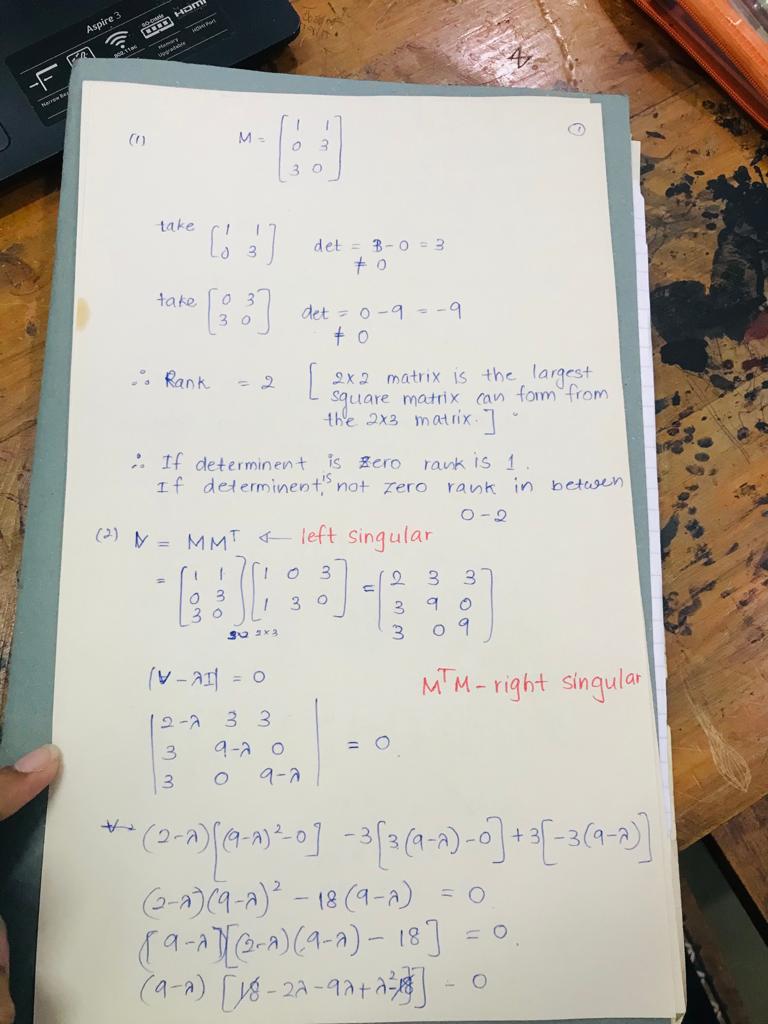 Aspire 3
HDMI
SO-DIMM
802.11ac
Memory
Upgradeable
HDMI Port
(1) M = [1 1
0 3
3 0]
1
take [1 1
0 3] det = 3-0 = 3
≠ 0
take [0 3
3 0] det = 0-9 = -9
≠ 0
∴ Rank = 2 [2x2 matrix is the largest
square matrix can form from
the 2x3 matrix.]
∴ If determinent is zero rank is 1.
If determinent is not zero rank in between
0-2
(2) V = MMᵀ ← left singular
= [1 1
0 3
3 0] [1 0 3
1 3 0] = [2 3 3
3 9 0
3 0 9]
2x3
|V-λI| = 0
MᵀM - right singular
|2-λ 3 3
3 9-λ 0
3 0 9-λ| = 0.
(2-λ)[(9-λ)²-0] -3[3(9-λ)-0]+3[-3(9-λ)]
(2-λ)(9-λ)² - 18(9-λ) = 0
[9-λ][(2-λ)(9-λ) - 18] = 0.
(9-λ) [18 - 2λ - 9λ + λ² - 18] = 0